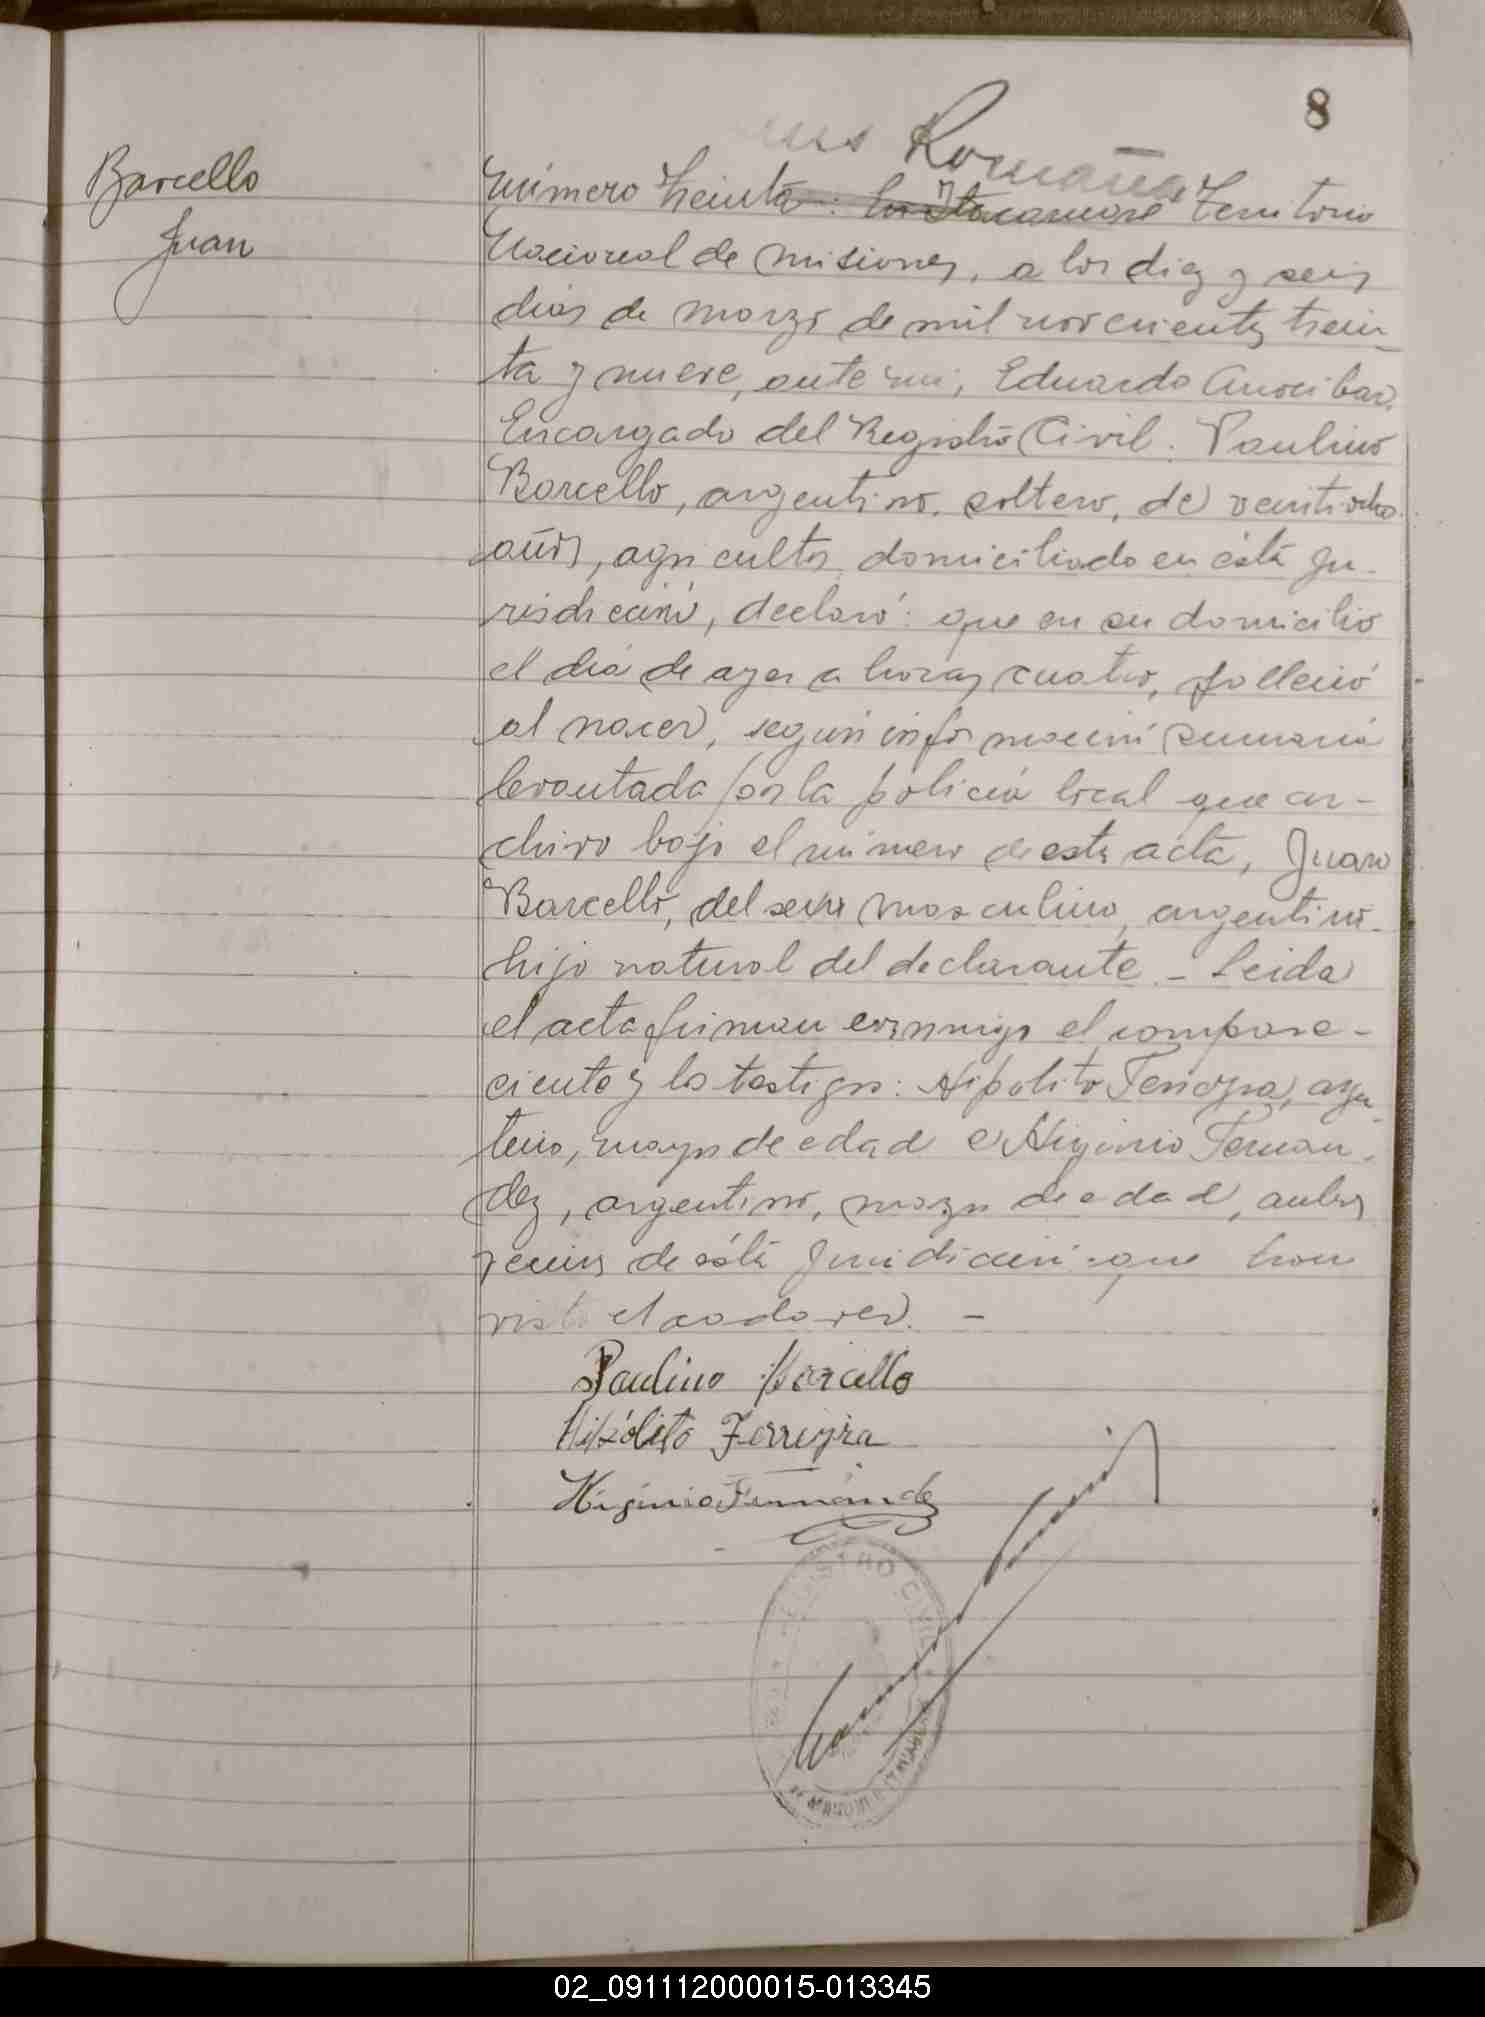 8
Romaña
Barcello
Juan
Número treinta: En Itacaruaré Territorio
Nacional de Misiones, a los diez y seis
dias de marzo de mil novecientos trein-
ta y nueve, ante mi, Eduardo
Encargado del Registro Civil: Paulino
Barcello, argentino, soltero, de veintiocho
años, agricultor domiciliado en ésta ju-
risdicción, declaró: que en su domicilio
el dia de ayer a horas cuatro, falleció
al nacer, según información sumaria
levantada por la policia local que ar-
chivo bajo el número de esta acta, Juan
Barcello, del sexo masculino, argentino
hijo natural del declarante - Leida
el acta firman conmigo el compare-
ciente y los testigos: Hipolito Ferreyra, argen
tino, mayor de edad e Higinio Fernan-
dez, argentino, mayor de edad, ambos
vecinos de ésta jurisdicción que han
visto el cadaver. -
Paulino Barcello
Hipólito Ferreyra
Higinio Fernández
REGISTRO CIVIL
02_091112000015-013345